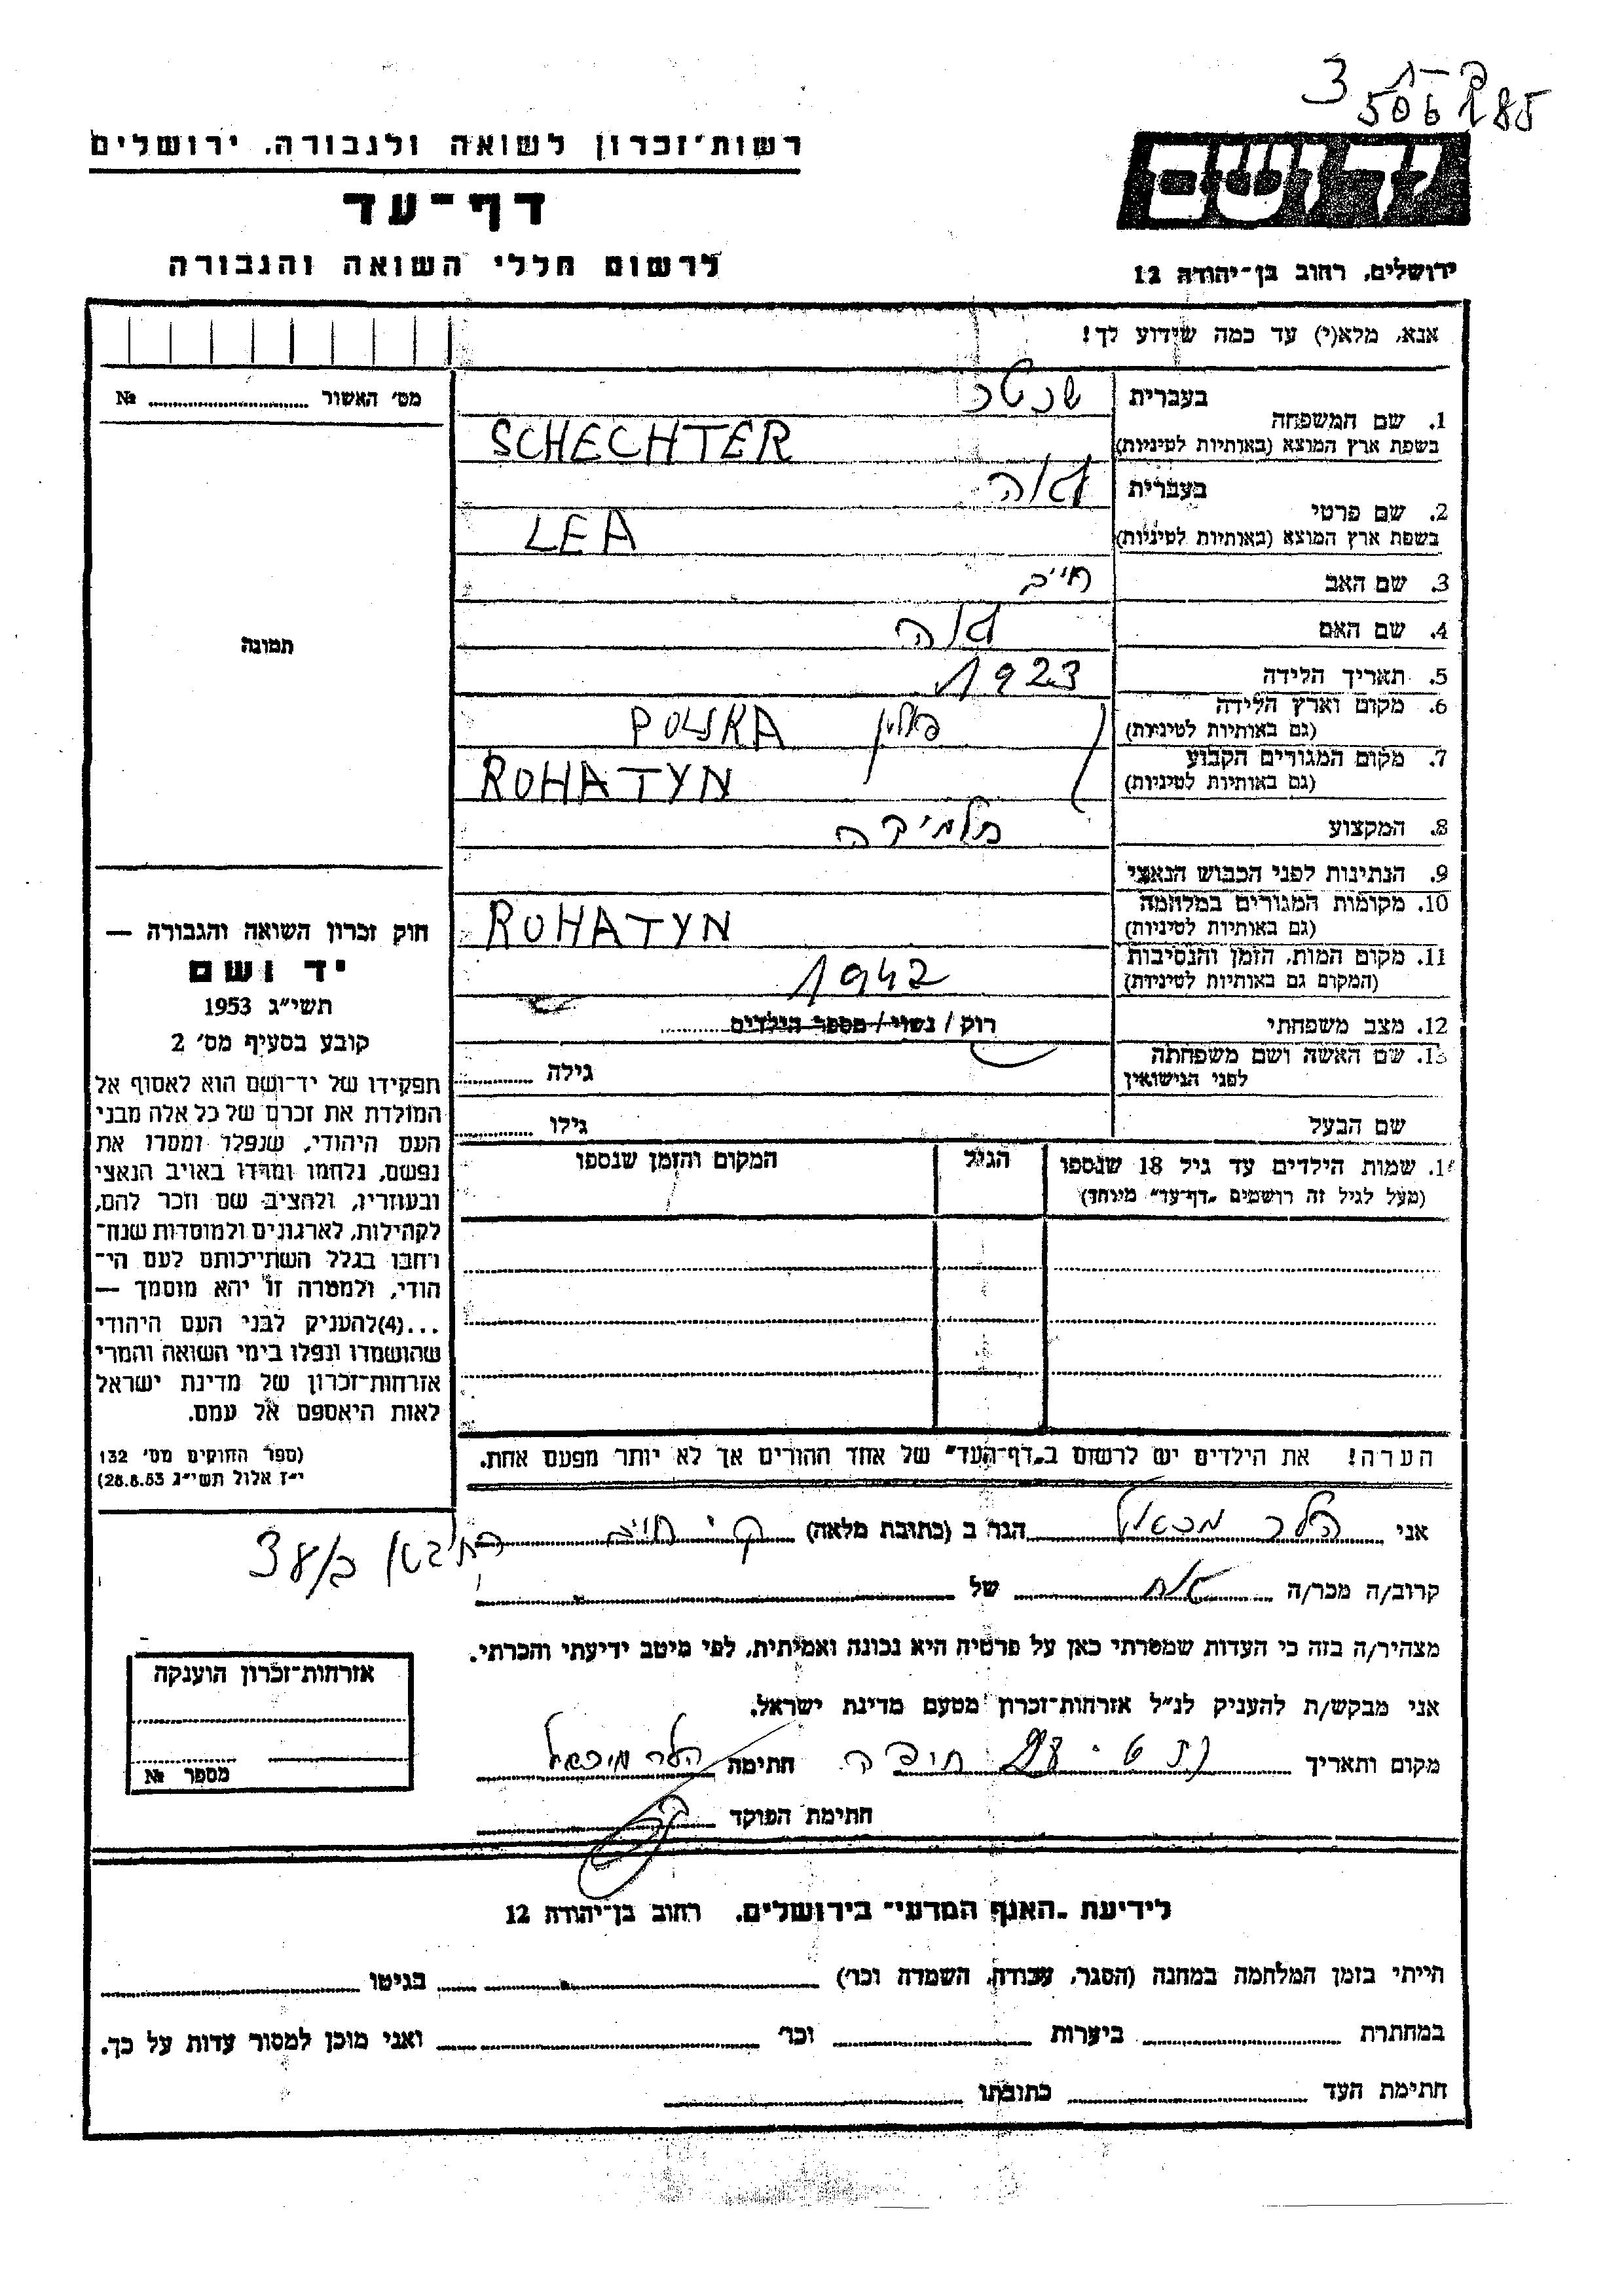 3
506 185
רשות־זכרון לשואה ולגבורה, ירושלים
דף־עד
לרשום חללי השואה והגבורה
יד ושם
ירושלים, רחוב בן־יהודה 12
אנא, מלא(י) עד כמה שידוע לך!
מס׳ האשור № 
1. שם המשפחה
בעברית
בשפת ארץ המוצא (באותיות לטיניות) SCHECHTER
2. שם פרטי
בעברית לאה
בשפת ארץ המוצא (באותיות לטיניות) LEA
3. שם האב חיים
4. שם האם
5. תאריך הלידה 1923
6. מקום וארץ הלידה פולין POLSKA
(גם באותיות לטיניות)
7. מקום המגורים הקבוע ROHATYN
(גם באותיות לטיניות)
8. המקצוע תלמידה
9. הנתינות לפני הכבוש הנאצי
10. מקומות המגורים במלחמה ROHATYN
(גם באותיות לטיניות)
11. מקום המות, הזמן והנסיבות 1942
(המקום גם באותיות לטיניות)
12. מצב משפחתי רוק / נשוי / מספר הילדים
13. שם האשה ושם משפחתה גילה
לפני הנישואין
שם הבעל גילו
תמונה
חוק זכרון השואה והגבורה —
יד ושם
תשי״ג 1953
קובע בסעיף מס׳ 2
תפקידו של יד־ושם הוא לאסוף אל
המולדת את זכרם של כל אלה מבני
העם היהודי, שנפלו ומסרו את
נפשם, נלחמו ומרדו באויב הנאצי
ובעוזריו, ולהציב שם וזכר להם,
לקהילות, לארגונים ולמוסדות שנח־
רחבו בגלל השתייכותם לעם הי־
הודי, ולמטרה זו יהא מוסמך —
...(4)להעניק לבני העם היהודי
שהושמדו ונפלו בימי השואה והמרי
אזרחות־זכרון של מדינת ישראל
לאות היאספם אל עמם.
(ספר החוקים מס׳ 132
י״ז אלול תשי״ג 28.8.53)
1. שמות הילדים עד גיל 18 שנספו הגיל המקום והזמן שנספו
(מעל לגיל זה רושמים „דף־עד״ מיוחד)
הערה! את הילדים יש לרשום ב„דף־העד״ של אחד ההורים אך לא יותר מפעם אחת.
אני הלר מכאל הגר ב (כתובת מלאה) ק׳ חיים
קרוב/ה מכר/ה של
מצהיר/ה בזה כי העדות שמסרתי כאן על פרטיה היא נכונה ואמיתית, לפי מיטב ידיעתי והכרתי.
אני מבקש/ת להעניק לנ״ל אזרחות־זכרון מטעם מדינת ישראל.
מקום ותאריך חיפה חתימה הלר מיכאל
חתימת הפוקד
אזרחות־זכרון הוענקה
מספר №
לידיעת „האגף המדעי״ בירושלים, רחוב בן־יהודה 12
הייתי בזמן המלחמה במחנה (הסגר, עבודה, השמדה וכר׳) בגיטו
במחתרת ביערות וכר׳ ואני מוכן למסור עדות על כך.
חתימת העד כתובתו